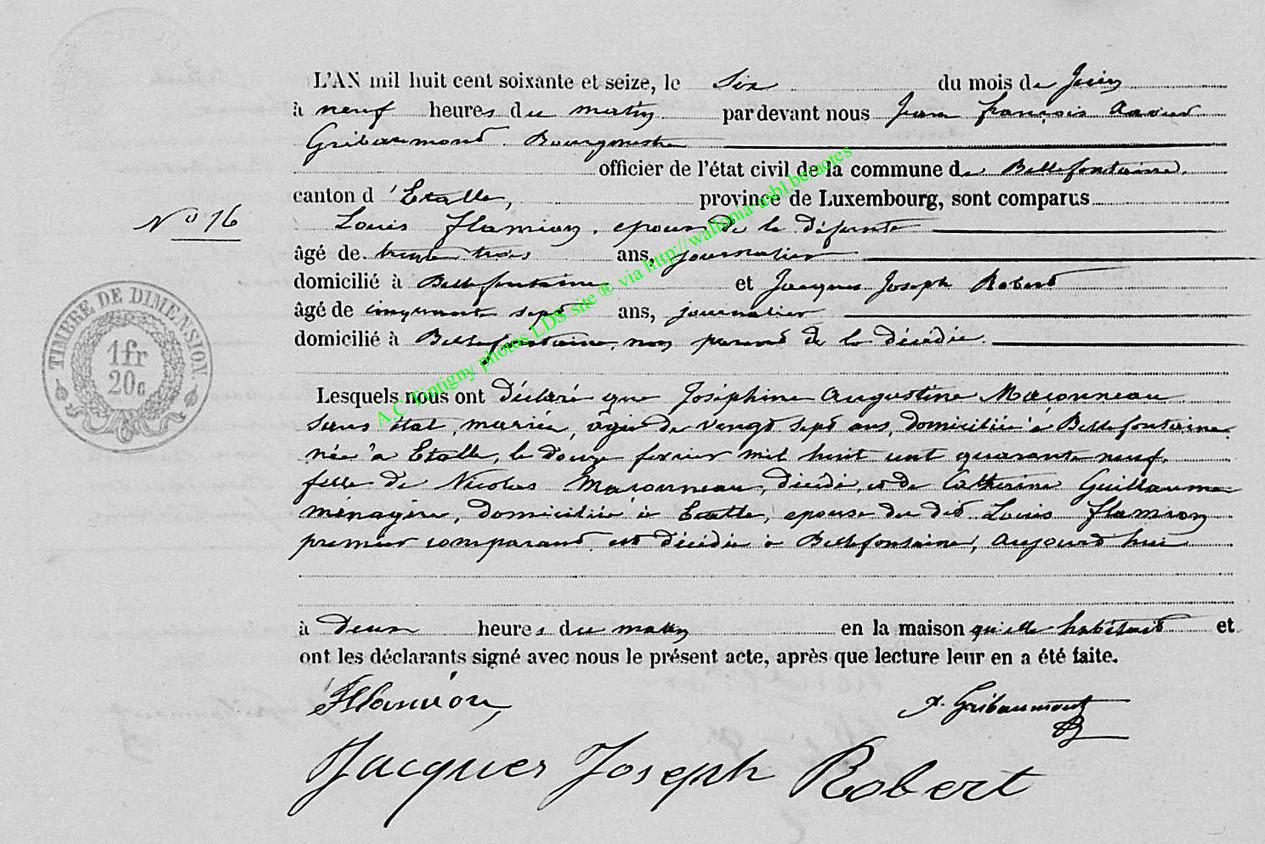 L'AN mil huit cent soixante et seize, le six du mois de Juin
à neuf heures du matin pardevant nous Jean françois
Gribaumont Bourgmestre
officier de l'état civil de la commune de Bellefontaine
canton d'Etalle, province de Luxembourg, sont comparus
N° 16
Louis Flamion, epoux de la défunte
âgé de trente trois ans, journalier
domicilié à Bellefontaine et Jacques Joseph Robert
âgé de cinquante sept ans, journalier
domicilié à Bellefontaine, non parent de la décédée.
TIMBRE DE DIMENSION
1fr
20c
Lesquels nous ont déclaré que Joséphine Augustine Maronneau
sans état, mariée, agée de vingt sept ans, domiciliée à Bellefontaine
née à Etalle, le douze fevrier mil huit cent quarante neuf,
fille de Nicolas Maronneau, décédé, et de Catherine Guillaume
ménagère, domiciliée à Etalle, epouse du dit Louis Flamion
premier comparant est décédée à Bellefontaine, aujourd'hui
à deux heures du matin en la maison qu'elle habitait et
ont les déclarants signé avec nous le présent acte, après que lecture leur en a été faite.
Flamion, A. Gribaumont
Jacques Joseph Robert
A.C. Tintigny photos LDS site ® via http://wallonia-asbl.be/notes